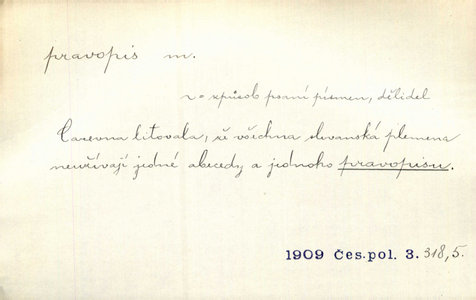 pravopis m.
způsob psaní písmen, dělidel
Carevna litovala, že všechna slovanská plemena
neužívají jedné abecedy a jednoho pravopisu.
1909 Čes. pol. 3. 318, 5.